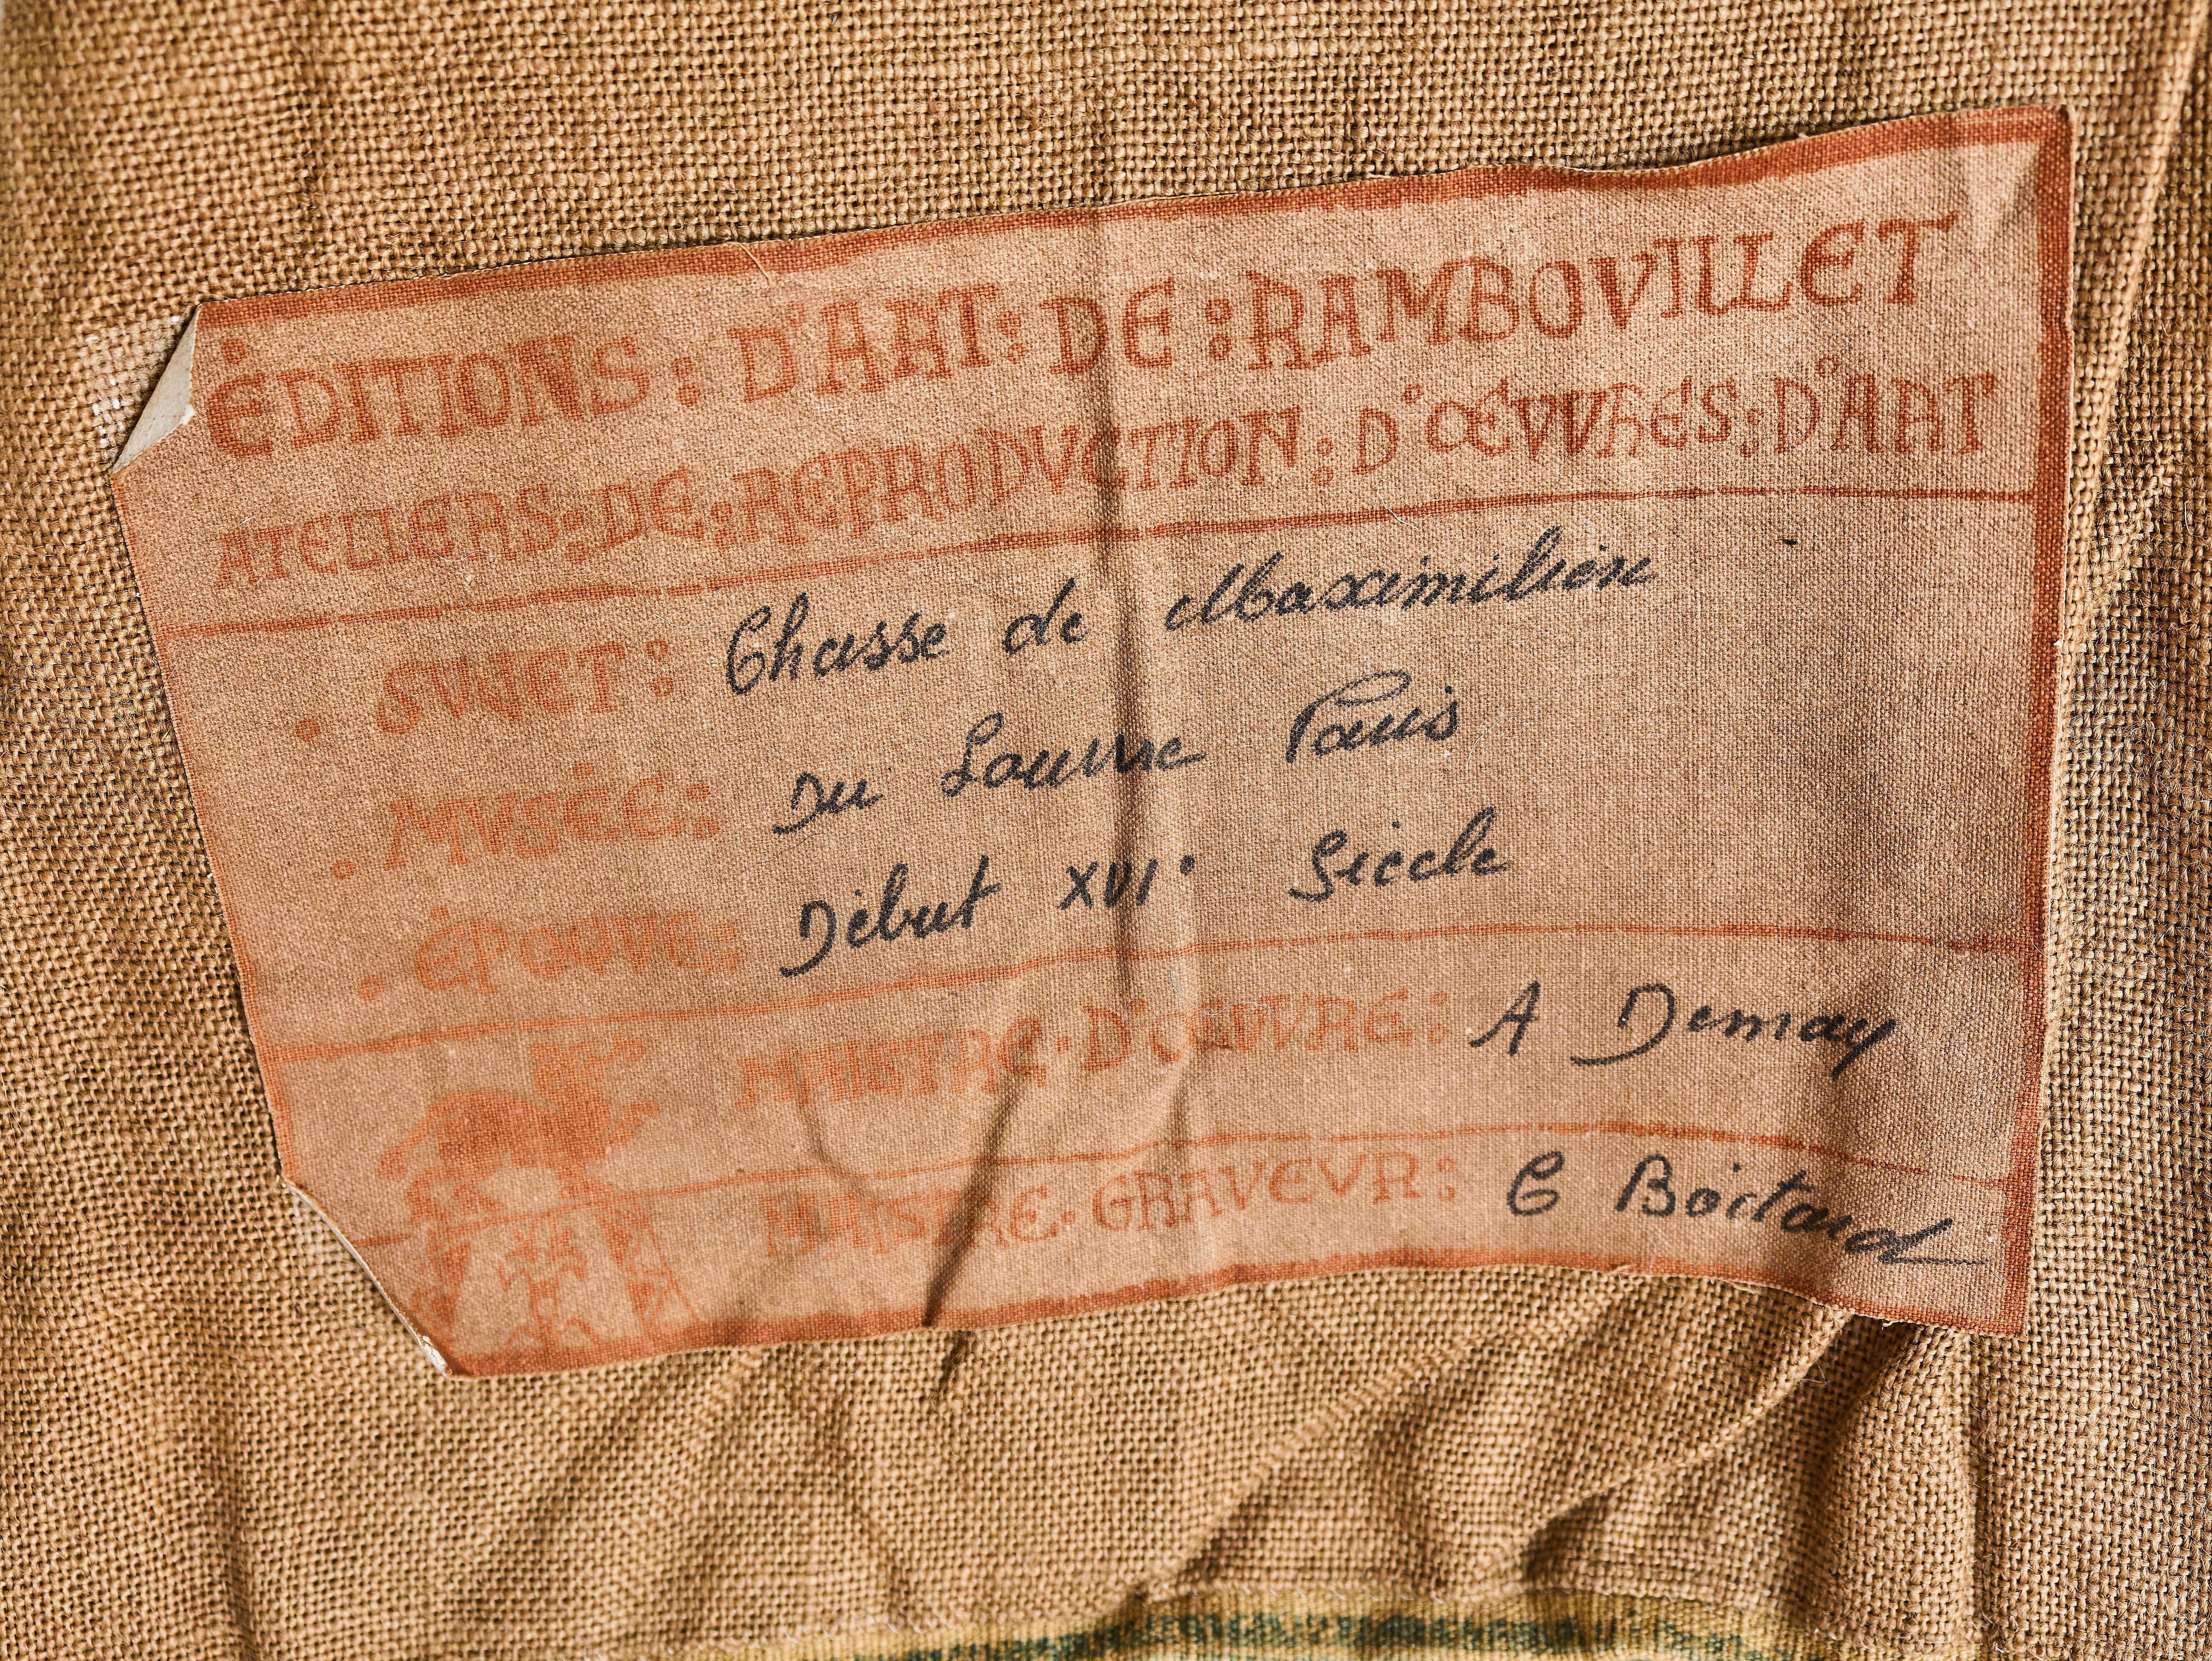 ÉDITIONS : D'ART : DE : RAMBOVILLET
ATELIERS : DE : REPRODVCTION : D'ŒVVRES : D'ART
• SVJET : Chasse de Maximilien
• MVSÉE : Du Louvre Paris
• ÉPOQVE : Début XVI° Siècle
MAISTRE • D'ŒVVRE : A Demay
MAISTRE • GRAVEVR : G Boitard